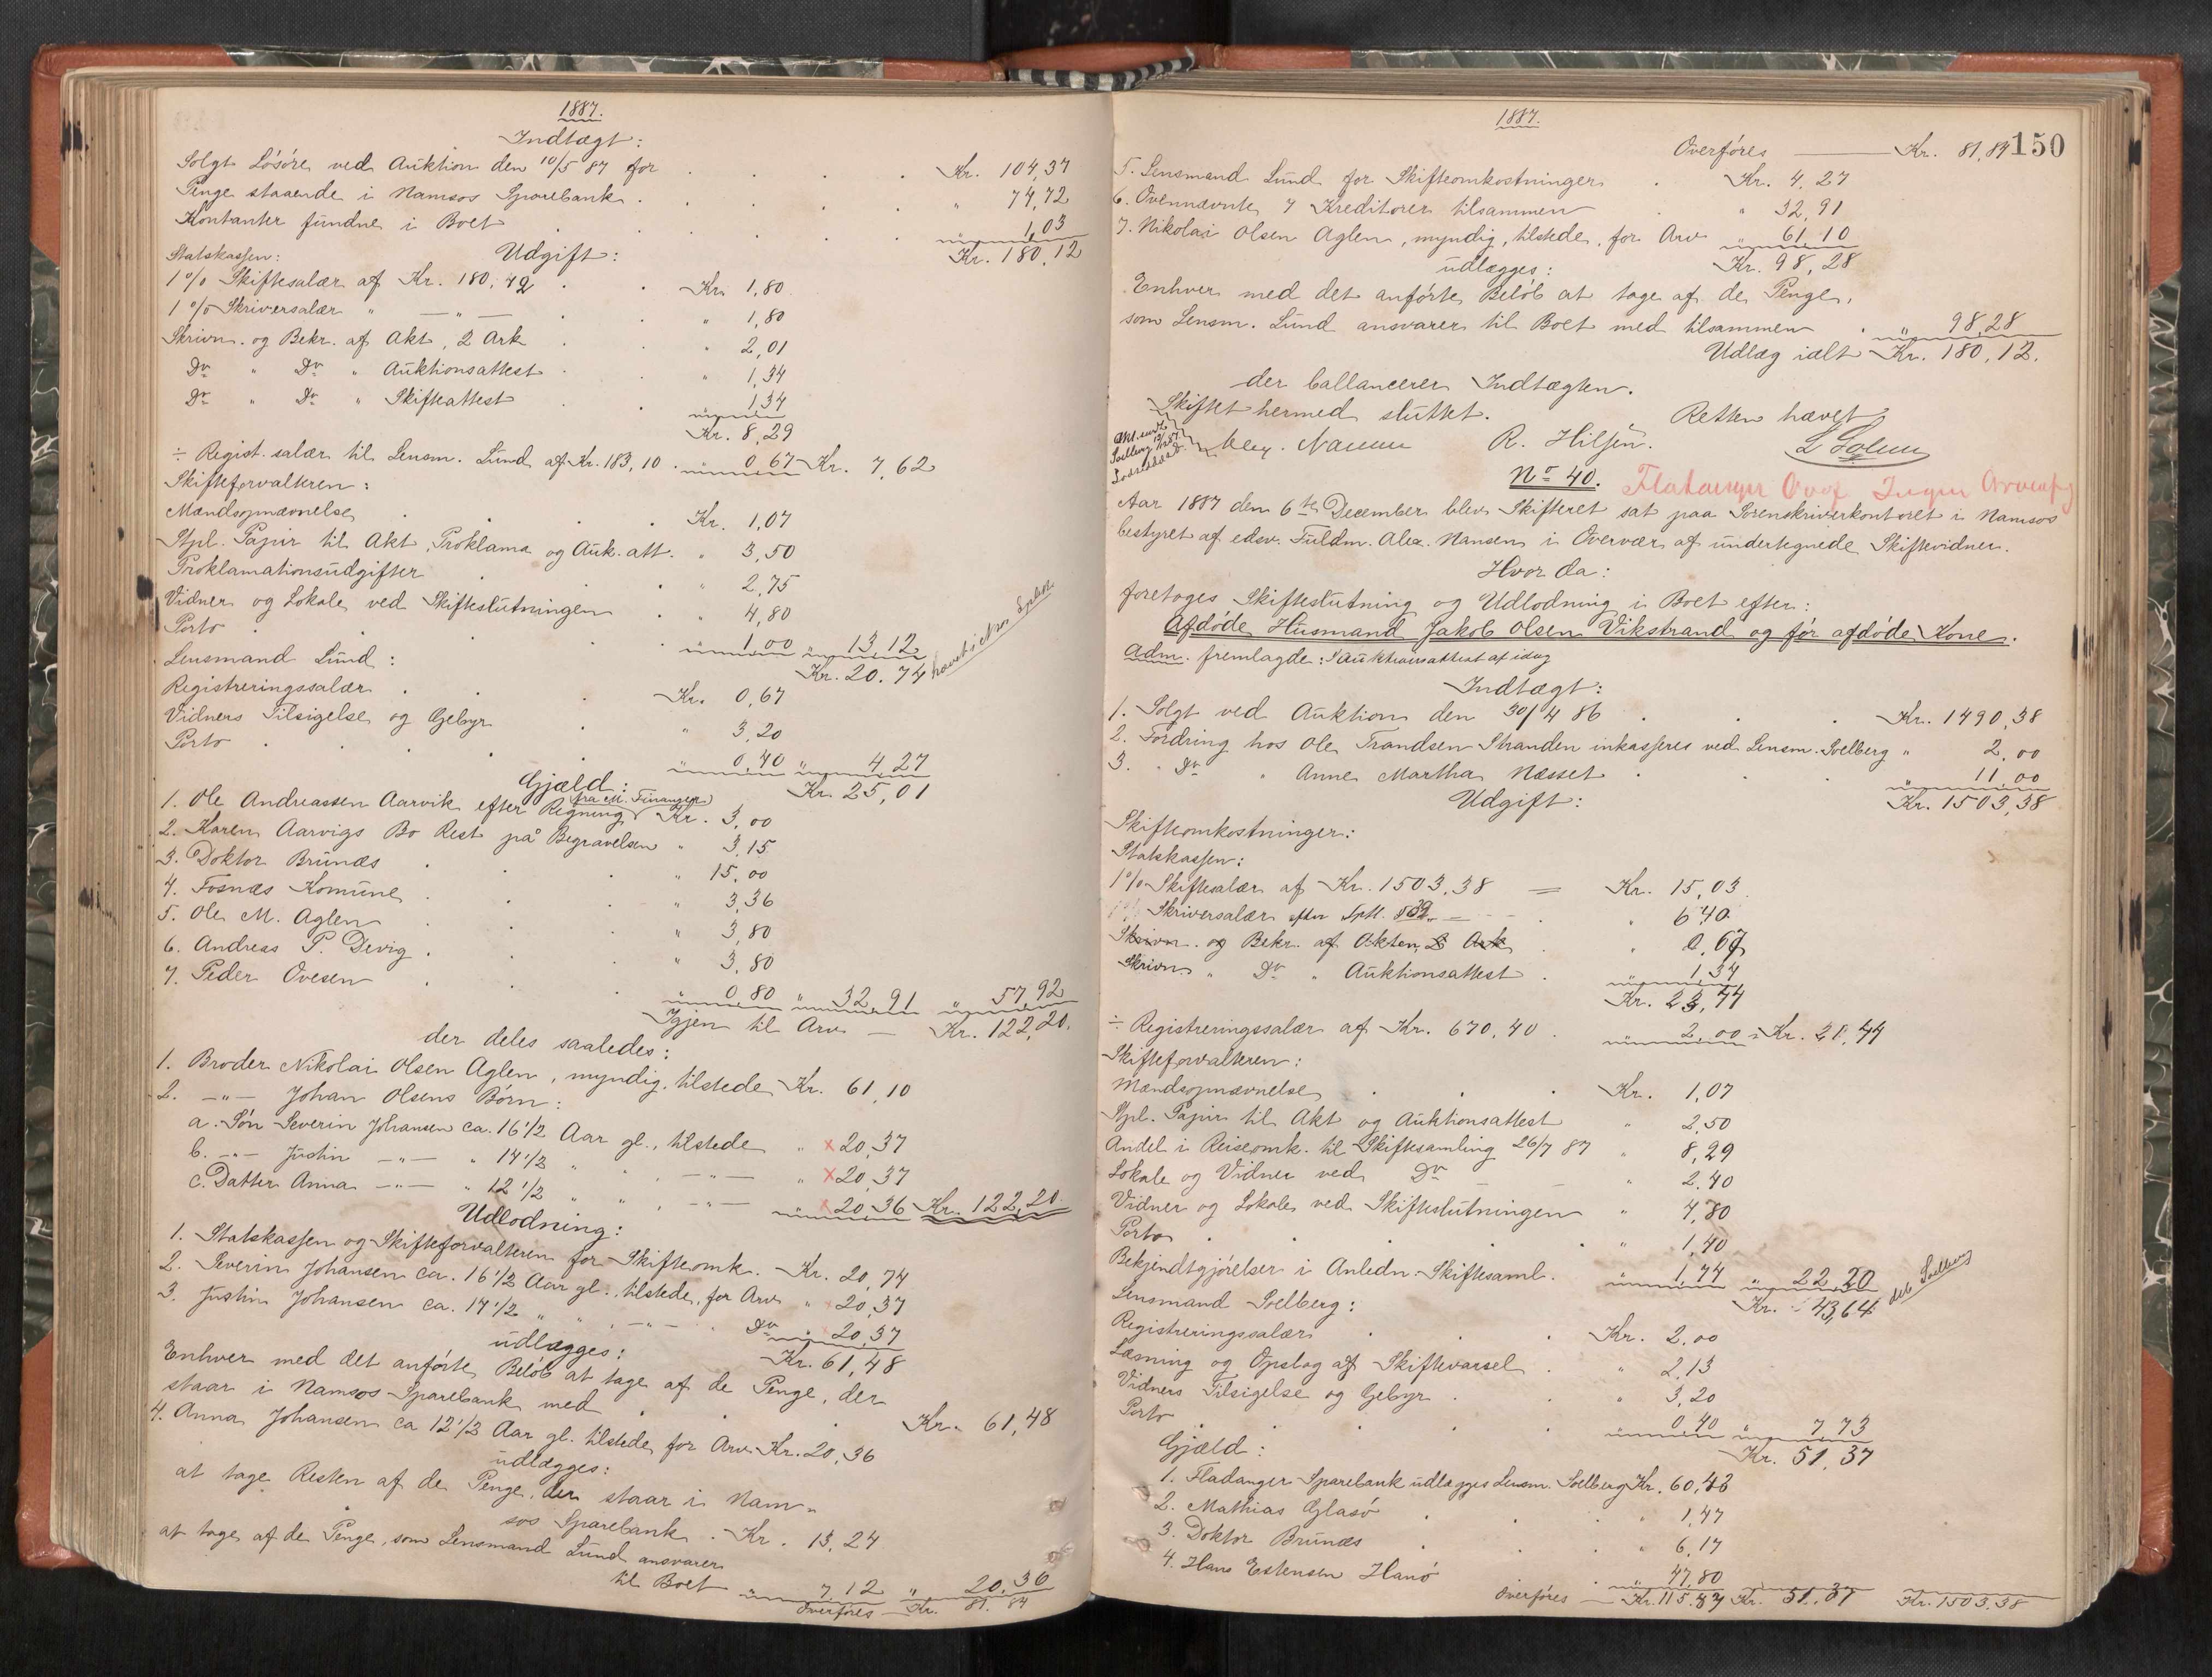 1887.
Indtægt:
Solgt Løsøre ved Auktion den 10/5 87 for . . . . Kr. 104,37
Penge staaende i Namsos Sparebank . . . . " 74,72
Kontanter fundne i Boet . . . . " 1,03
Kr. 180,12
Udgift:
Statskassen:
1% Skiftesalær af Kr. 180,12 . . Kr. 1,80
1% Skriversalær " — " — . . " 1,80
Skrivn. og Bekr. af Akt, 2 Ark . . " 2,01
Do " Do " Auktionsattest . . " 1,34
Do " Do " Skifteattest . . 1,34
Kr. 8,29
÷ Regist. salær til Lensm. Lund af Kr. 183,10 . " 0,67 Kr. 7,62
Skifteforvalteren:
Mændsopnævnelse . . . Kr. 1,07
Stpl. Papir til Akt, Proklama og Auk. att. " 3,50
Proklamationsudgifter . . " 2,75
Vidner og Lokale ved Skifteslutningen . " 4,80
Porto . . . . " 1,00 " 13,12
Kr. 20.74
Lensmand Lund:
Registreringssalær . . . Kr. 0,67
Vidners Tilsigelse og Gebyr . . " 3,20
Porto . . . . " 0,40 " 4,27
Kr. 25,01
Gjæld:
1. Ole Andreassen Aarvik efter Regning fra M. Finanger Kr. 3,00
2. Karen Aarvigs Bo Rest på Begravelsen " 3,15
3. Doktor Brünæs . . " 15,00
4. Fosnæs Komune . . " 3,36
5. Ole M. Aglen . . " 3,80
6. Andreas P. Devig . . " 3,80
7. Peder Ovesen . . " 0,80 " 32,91 " 57,92
Igjen til Arv — Kr. 122,20.
der deles saaledes:
1. Broder Nikolai Olsen Aglen, myndig, tilstede Kr. 61,10
2. —"— Johan Olsens Børn:
a. Søn Severin Johansen ca. 16 1/2 Aar gl., tilstede " x 20,37
b. —"— Justin —"— " 14 1/2 " " —"— " x 20,37
c. Datter Anna —"— " 12 1/2 " " —"— " x 20,36 Kr. 122,20.
Udlodning:
1. Statskassen og Skifteforvalteren for Skifteomk. Kr. 20,74
2. Severin Johansen ca. 16 1/2 Aar gl., tilstede, for Arv " x 20,37
3. Justin Johansen ca. 14 1/2 " " —"— Do " x 20,37
Kr. 61,48
udlægges:
Enhver med det anførte Beløb at tage af de Penge, der
staar i Namsos Sparebank med . . . Kr. 61,48
4. Anna Johansen ca 12 1/2 Aar gl. tilstede, for Arv Kr. 20,36
udlægges:
at tage Resten af de Penge, der staar i Nam-
sos Sparebank . Kr. 13,24
at tage af de Penge, som Lensmand Lund ansvarer
til Boet " 7,12 " 20,36
Overføres — Kr. 81.84
1887.
150
Overføres — Kr. 81,84
5. Lensmand Lund for Skifteomkostninger . Kr. 4,27
6. Ovennævnte 7 Kreditorer tilsammen . " 32,91
7. Nikolai Olsen Aglen, myndig, tilstede, for Arv " 61,10
Kr. 98,28
udlægges:
Enhver med det anførte Beløb at tage af de Penge,
som Lensm. Lund ansvarer til Boet med tilsammen . " 98,28
Udlæg ialt Kr. 180,12.
der ballancerer Indtægten.
Skiftet hermed sluttet. Retten hævet
Alex. Nansen R. Hilsén. L Solum
No 40.
Aar 1887 den 6te December blev Skifteret sat paa Sorenskriverkontoret i Namsos
bestyret af edsv. Fuldm. Alex. Nansen i Overvær af undertegnede Skiftevidner.
Hvor da:
foretoges Skifteslutning og Udlodning i Boet efter:
Afdøde Husmand Jakob Olsen Vikstrand og før afdøde Kone.
Adm. fremlagde: 1 Auktionsattest af idag
Indtægt:
1. Solgt ved Auktion den 30/4 86 . . . Kr. 1490,38
2. Fordring hos Ole Trandsen Stranden inkasseres ved Lensm. Soelberg " 2,00
3. " Do " Anne Martha Næsset . . " 11,00
Kr. 1503,38
Udgift:
Skifteomkostninger:
Statskassen:
1% Skiftesalær af Kr. 1503,38 = Kr. 15,03.
Skriversalær efter . " 6,40
Skrivn. og Bekr. af Akten, Ark . " 0,67
Skrivn " Do " Auktionsattest . " 1,34
Kr. 23,44
÷ Registreringssalær af Kr. 670,40 . " 2,00 Kr. 21,44
Skifteforvalteren:
Mændsopnævnelse . . Kr. 1,07
Stpl. Papir til Akt og Auktionsattest " 2,50
Andel i Reiseomk. til Skiftesamling 26/7 87 " 8,29
Lokale og Vidner ved Do — — " 2.40
Vidner og Lokale ved Skifteslutningen " 4,80
Porto . . . . " 1,40
Bekjendtgjørelser i Anledn. Skiftesaml. " 1,74 " 22,20
Kr. 43,64
Lensmand Soelberg:
Registreringssalær . . . Kr. 2,00
Læsning og Opslag af Skiftevarsel . " 2,13
Vidners Tilsigelse og Gebyr . . " 3,20
Porto . . . . " 0,40 " 7,73
Kr. 51,37
Gjæld:
1. Fladanger Sparebank udlægges Lensm. Soelberg Kr. 60,43
2. Mathias Glasø . . " 1,47
3. Doktor Brünæs . . " 6,17
4. Hans Estensen Hanø . " 47,80
Overføres — Kr. 115.87 Kr. 51,37 Kr. 1503,38